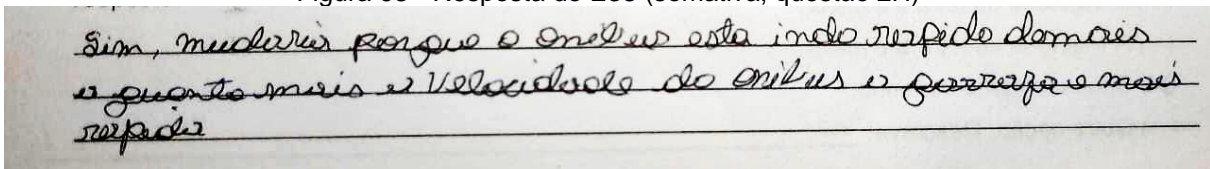 Sim, mudaria porque o onibus esta indo rapido demais
e quanto mais a Velocidade do onibus a garrafa e mais
rapida